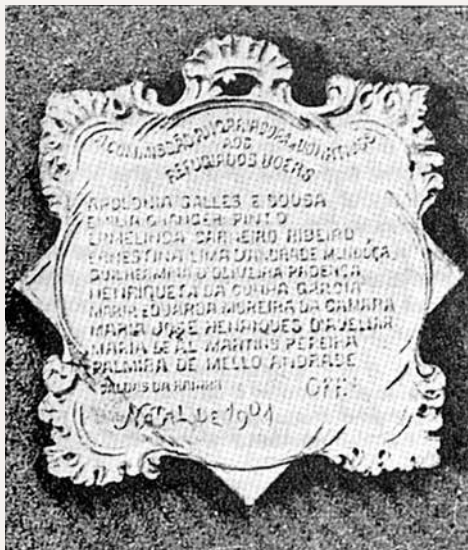 A COMMISSÃO ANGARIADORA DE DONATIVOS
AOS
REFUGIADOS BOERS
APOLONIA SALLES E SOUSA
EMILIA GRANGER PINTO
ERMELINDA CARNEIRO RIBEIRO
ERNESTINA LIMA D'ANDRADE MENDOÇA
GUILHERMINA D'OLIVEIRA PROENÇA
HENRIQUETA DA CUNHA GARCIA
MARIA EDUARDA MOREIRA DA CAMARA
MARIA JOSE HENRIQUES D'AVELLAR
MARIA DE AL MARTINS PEREIRA
PALMIRA DE MELLO ANDRADE
CALDAS DA RAINHA OFF.
NATAL DE 1901